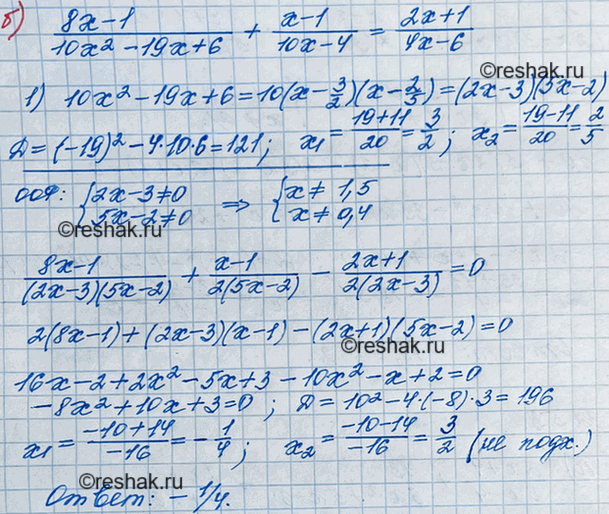 б) (8x-1)/(10x²-19x+6) + (x-1)/(10x-4) = (2x+1)/(4x-6)
1) 10x²-19x+6=10(x-3/2)(x-2/5)=(2x-3)(5x-2)
D=(-19)²-4·10·6=121; x₁=(19+11)/20=3/2; x₂=(19-11)/20=2/5
ООФ: {2x-3≠0 5x-2≠0 ⇒ {x≠1,5 x≠0,4
©reshak.ru
©reshak.ru
(8x-1)/((2x-3)(5x-2)) + (x-1)/(2(5x-2)) - (2x+1)/(2(2x-3)) =0
2(8x-1)+(2x-3)(x-1)-(2x+1)(5x-2)=0
©reshak.ru
16x-2+2x²-5x+3-10x²-x+2=0
-8x²+10x+3=0; D=10²-4·(-8)·3=196
x₁=(-10+14)/-16=-1/4; x₂=(-10-14)/-16=3/2 (не подх.)
©reshak.ru
©reshak.ru
Ответ: -1/4.